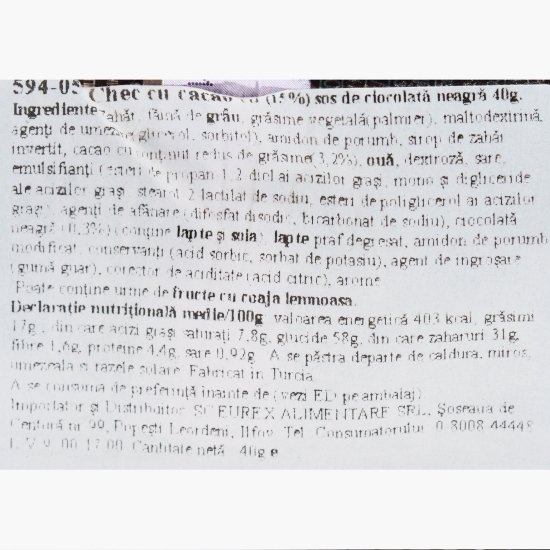 594-05 Chec cu cacao cu (15%) sos de ciocolată neagră 40g.
Ingrediente zahăr, făină de grâu, grăsime vegetală(palmier), maltodextrină,
agenți de umezire(glicerol, sorbitol), amidon de porumb, sirop de zahăr
invertit, cacao cu conținut redus de grăsime(3,2%), ouă, dextroză, sare,
emulsifianți (esteri de propan-1,2-diol ai acizilor grași, mono și digliceride
ale acizilor grași, stearoil-2-lactilat de sodiu, esteri de poliglicerol ai acizilor
grași), agenți de afânare (difosfat disodic, bicarbonat de sodiu), ciocolată
neagră (0,3%)(conține lapte și soia), lapte praf degresat, amidon de porumb
modificat, conservanți (acid sorbic, sorbat de potasiu), agent de îngroșare
(gumă guar), corector de aciditate (acid citric), arome
Poate conține urme de fructe cu coaja lemnoasa.
Declarație nutrițională medie/100g valoarea energetică 403 kcal, grăsimi
17g , din care acizi grași saturați 7.8g, glucide 58g, din care zaharuri 31g,
fibre 1,6g, proteine 4,4g, sare 0.92g. A se păstra departe de caldura, miros,
umezeala si razele solare. Fabricat in Turcia.
A se consuma de preferință inainte de (vezi ED pe ambalaj)
Importator și Distribuitor SC EUREX ALIMENTARE SRL., Șoseaua de
Centură nr 99, Popești Leordeni, Ilfov. Tel. Consumatorului 0 8008 44448
L-V 9.00-17.00. Cantitate netă 40g e